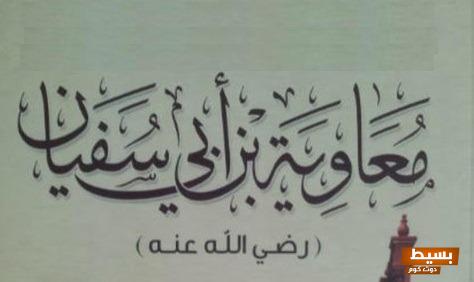 مُعَاوِيَة بن أَبي سُفيَان
(رضي الله عنه)
بسيط
دوت كوم